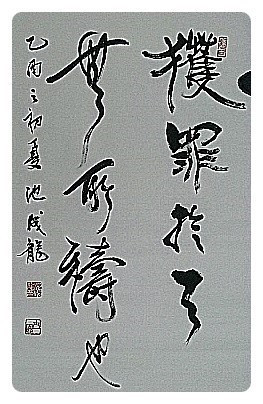 獲罪於天
無所禱也
乙酉之初夏 池成龍